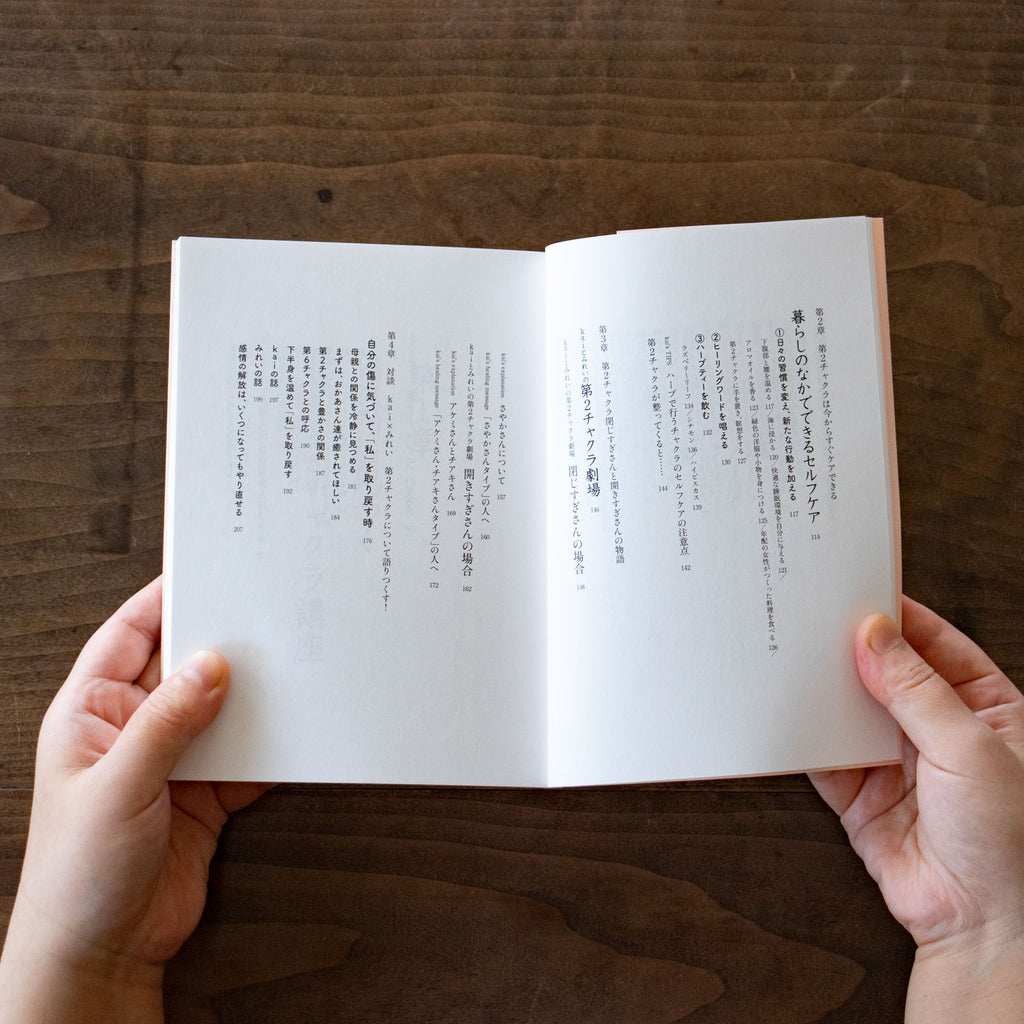 第2章　第2チャクラは今からすぐケアできる
暮らしのなかでできるセルフケア　114
①日々の習慣を変え、新たな行動を加える　117
下腹部と腰を温める　117／海に浸かる　120　快適な睡眠環境を自分に与える　121／
アロマオイルを香る　123　緑色の洋服や小物を身につける　125／年配の女性がつくった料理を食べる　126／
第2チャクラに手を置き、瞑想をする　127
②ヒーリングワードを唱える　130
③ハーブティーを飲む　132
ラズベリーリーフ　134／シナモン　136　ハイビスカス　139
kai's TIPS　ハーブで行うチャクラのセルフケアの注意点　142
第2チャクラが整ってくると……　144
第3章　第2チャクラ閉じすぎさんと開きすぎさんの物語
kaiとみれいの第2チャクラ劇場　146
kaiとみれいの第2チャクラ劇場　閉じすぎさんの場合　148
kai's explanation　さやかさんについて　157
kai's healing message　「さやかさんタイプ」の人へ　160
kaiとみれいの第2チャクラ劇場　開きすぎさんの場合　162
kai's explanation　アケミさんとチアキさん　169
kai's healing message　「アケミさん・チアキさんタイプ」の人へ　172
第4章　対談　kai×みれい　第2チャクラについて語りつくす！
自分の傷に気づいて、「私」を取り戻す時　176
母親との関係を冷静に見つめる　181
まずは、おかあさん達が癒されてほしい　184
第2チャクラと豊かさの関係　187
第6チャクラとの呼応　190
下半身を温めて「私」を取り戻す　192
kaiの話　197
みれいの話　199
感情の解放は、いくつになってもやり直せる　207